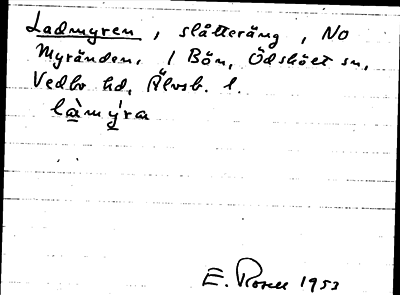 Ladmyren, slåtteräng, NO
Myränden, / Bön, Ödsköet sn,
Vedbo hd, Älvsb. l.
là̱mý̱ra
E. Rosell 1953